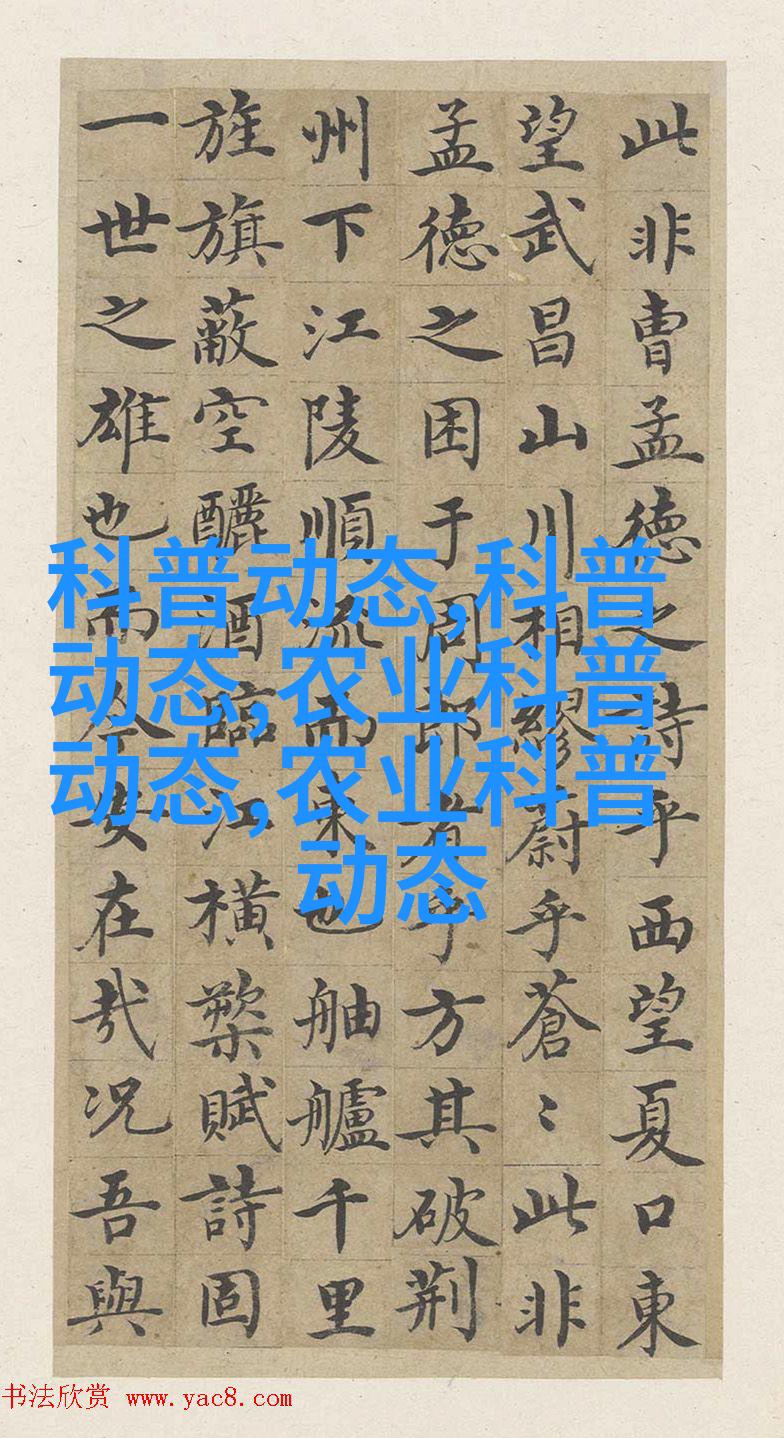 此非曹孟德之詩乎西望夏口東
望武昌山川相繆蔚乎蒼〻此非
孟德之困于周郎者乎方其破荆
州下江陵順流而東也舳艫千里
旌旗蔽空釃酒臨江橫槊賦詩固
一世之雄也而今安在哉況吾與
科普动态,科普
动态,农业科普
动态,农业科普
动态
书法欣赏 www.yac8.com